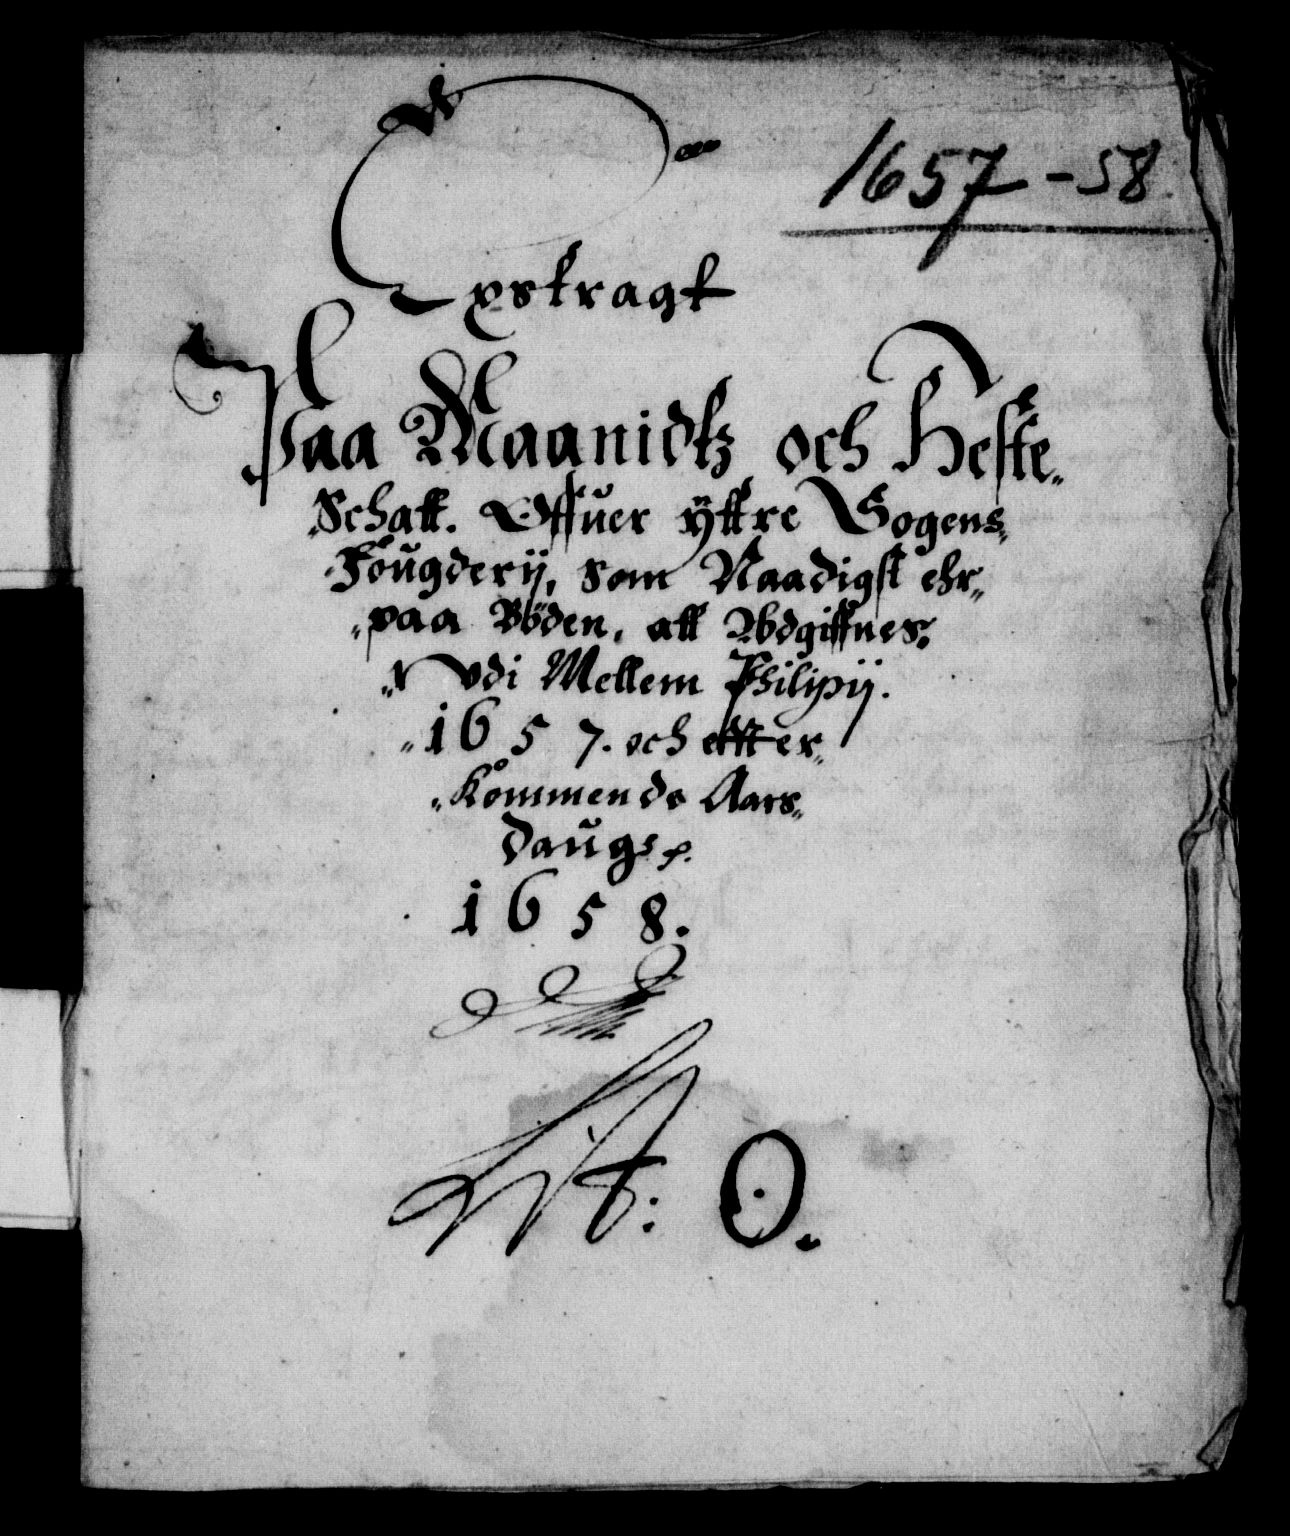 1657-58
Extragt
Paa Maanidtz och Heste
Schatt. Offuer ÿttre Sogens
Fougderij, Som Naadigst ehr
paa Böden, att Udgiffues.
Udi Mellem Philipij.
1657. och effter
Kommende Aars
Daugs
1658.
Lit: O.